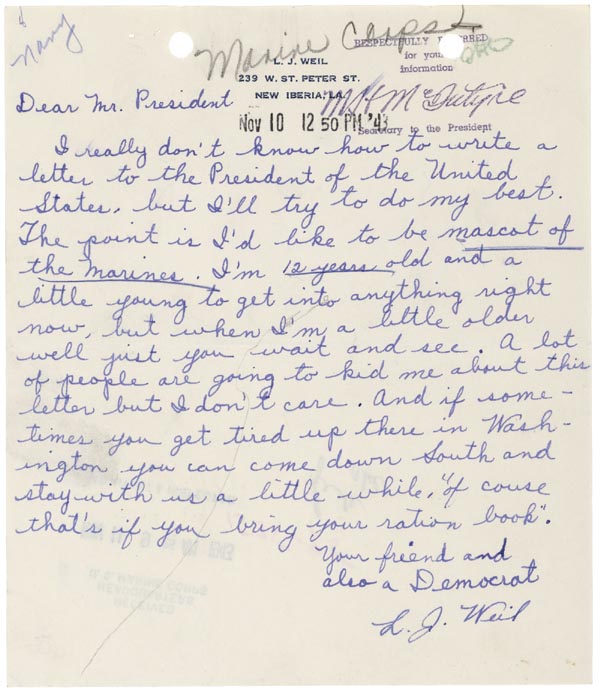 Navy
Marine Corps
RESPECTFULLY REFERRED
for your
information
L. J. WEIL
239 W. ST. PETER ST.
NEW IBERIA, LA.
M H McIntyre
Secretary to the President
Nov 10 12 50 PM '43
Dear Mr. President
I really don't know how to write a
letter to the President of the United
States, but I'll try to do my best.
The point is I'd like to be mascot of
the Marines. I'm 12 years old and a
little young to get into anything right
now, but when I'm a little older
well just you wait and see. A lot
of people are going to kid me about this
letter but I don't care. And if some-
times you get tired up there in Wash-
ington you can come down South and
stay with us a little while, "of couse
that's if you bring your ration book".
Your friend and
also a Democrat
L. J. Weil
RECEIVED
HEADQUARTERS
U. S. MARINE CORPS